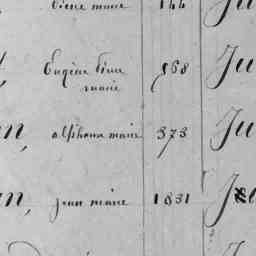 marie 144 Ju
Eugène 168 Ju
marie
n, alphonse marie 373 Ju
en, jean marie 1831 J